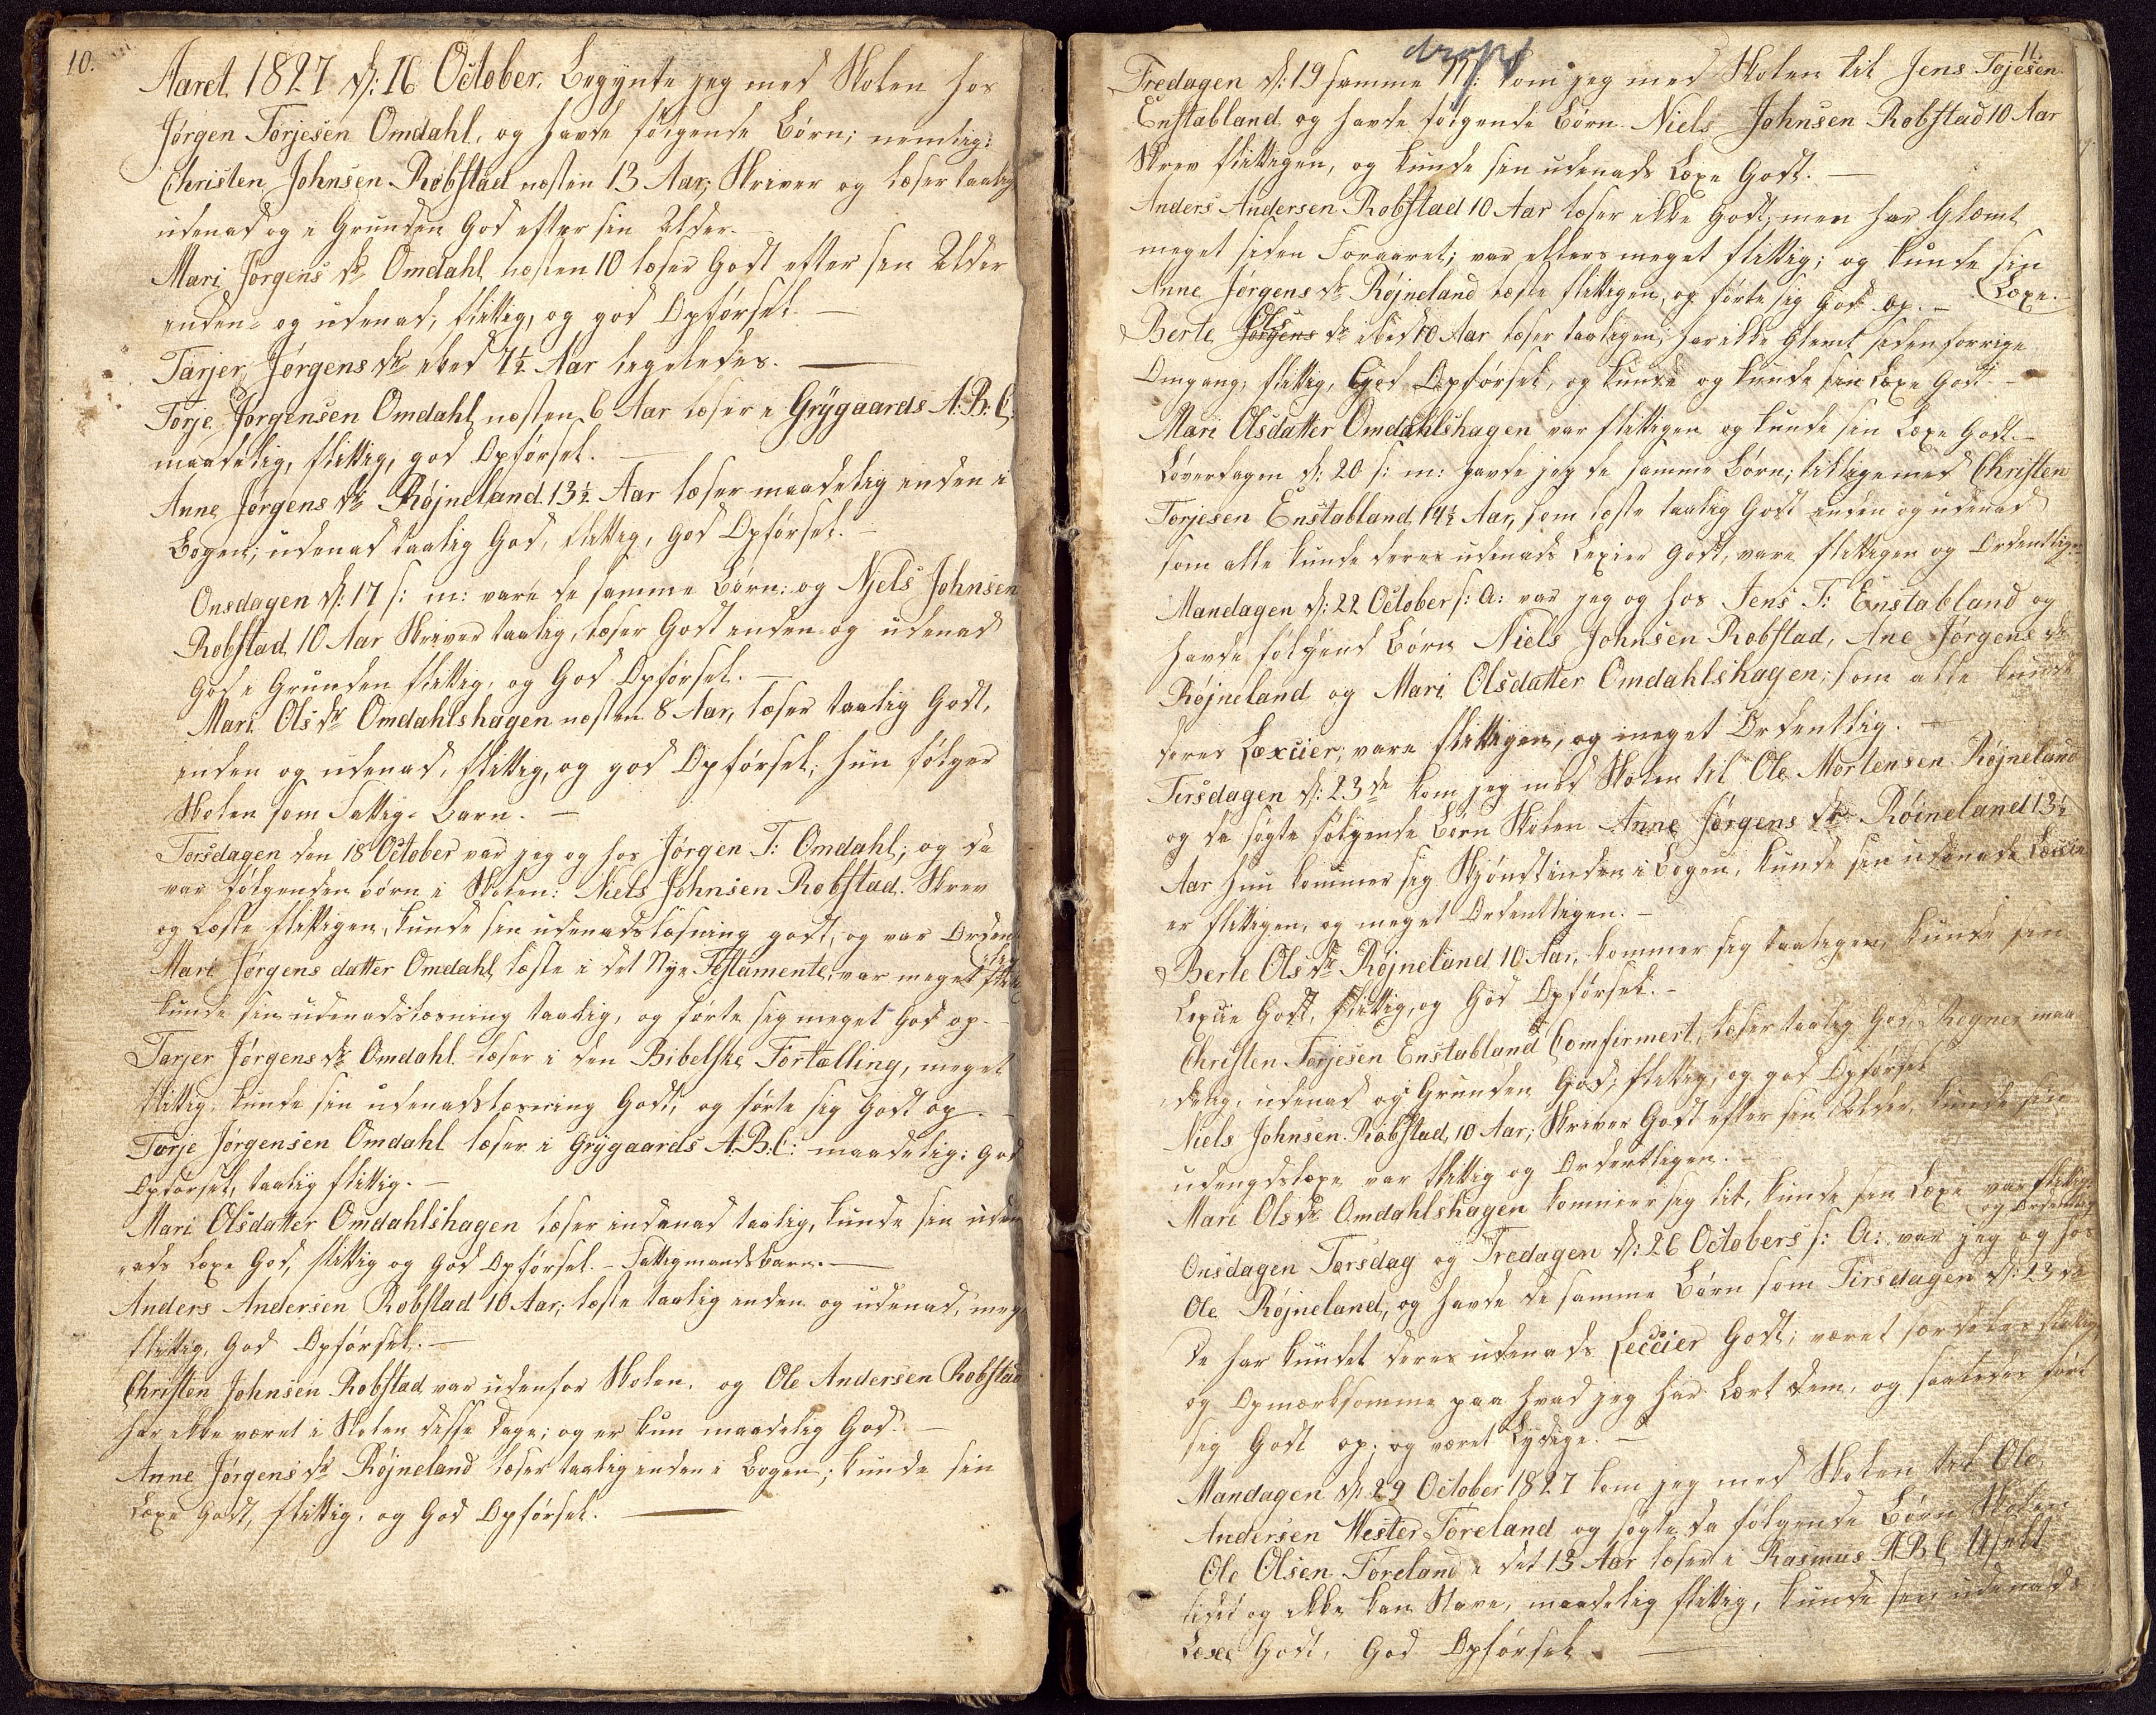 10.
Aaret 1827 d: 16 October. Begynte jeg med Skolen hos
Jørgen Torjesen Omdahl, og havde følgende Børn; nemlig:
Christen Johnsen Robstad næsten 13 Aar; Skriver og læser taalig
udenad og i Grunden God efter sin Alder.
Mari Jørgens dr Omdahl næsten 10 læser Godt efter sin Alder
inden- og udenad, flittig, og god Opførsel. —
Tarjer Jørgens dr ibed 7½ Aar ligeledes. —
Torje Jørgensen Omdahl næsten 6 Aar læser i Grÿgaards A.B.C.
maadelig, flittig, god Opførsel. —
Anne Jørgens dr Røjneland 13½ Aar læser maadelig inden i
Bogen; udenad taalig God, flittig, God Opførsel. —
Onsdagen d: 17 s: m: vare de samme Børn: og Njels Johnsen
Robstad, 10 Aar Skriver taalig, læser Godt inden og udenad
God i Grunden flittig, og God Opførsel. —
Mari Ols dr Omdahlshagen næsten 8 Aar, læser taalig Godt,
inden og udenad, flittig, og god Opførsel; hun følger
Skolen som Fattig-Barn. —
Torsdagen den 18 October var jeg og hos Jørgen T: Omdahl; og da
var følgenden børn i Skolen: Niels Johnsen Robstad. Skrev
og Læste flittigen, kunde sin udenadslæsning godt, og var Orden
tlig
Mari Jørgens datter Omdahl læste i det Nye Testamente, var meget flittig
kunde sin udenadslæsning taalig, og førte sig meget God op —
Tarjer Jørgens dr Omdahl læser i den Bibelske Fortælling, meget
flittig, kunde sin udenadslæsning Godt, og førte sig Godt op. —
Torje Jørgensen Omdahl læser i Grÿgaards A.B.C: maadelig: God
Opførsel, taalig flittig. —
Mari Olsdatter Omdahlshagen læser indenad taalig, kunde sin uden
ads Lexe God, flittig og God Opførsel. – Fattigmandsbarn. —
Anders Andersen Robstad 10 Aar; læste taalig inden og udenad, meg
flittig, God Opførsel. —
Christen Johnsen Robstad var udenfor Skolen, og Ole Andersen Robstad
har ikke været i Skolen disse Dage; og er kun maadelig God. —
Anne Jørgens dr Røjneland læser taalig inden i Bogen; kunde sin
Lexe Godt, flittig, og God Opførsel. —
11.
Fredagen d: 19 samme M: kom jeg med Skolen til Jens Tojesen
Enstabland og havde følgende Børn Niels Johnsen Robstad 10 Aar
Skrev flittigen, og kunde sin udenads Lexe Godt. —
Anders Andersen Robstad 10 Aar læser ikke Godt, men har Glemt
meget siden Foraaret; var ellers meget flittig; og kunde sin
Lexe.
Anne Jørgens dr Røjneland læste flittigen, og førte sig God op. —
Ols
Berte Jørgens dr ibed 10 Aar læser taaligen; har ikke Glemt siden forrige
Omgang, flittig, God Opførsel, og kunde og kunde sin Lexe Godt —
Mari Olsdatter Omdahlshagen var flittigen og kunde sin Lexe Godt. —
Løverdagen d: 20 s: m: havde jeg de samme Børn; tilligemed Christen
Torjesen Enstabland, 14½ Aar, som læste taalig Godt inden og udenad
som alle kunde deres udenads Lexier Godt, vare flittigen og Ordentlige
Mandagen d: 22 October s: A: var jeg og hos Jens T: Enstabland og
havde følgend Børn Niels Johnsen Robstad, Ane Jørgens dr
Røjneland og Mari Olsdatter Omdahlshagen; som alle kunde
deres Lexcier; vare flittigen, og meget Ordentlig. —
Tirsdagen d: 23de kom jeg med Skolen til Ole Mortensen Røjneland
og da søgte følgende Børn Skolen Anne Jørgens dr Røineland 13½
Aar hun kommer sig Skjøndt inden i Bogen, kunde sin udenads Leccie
er flittigen, og meget Ordentligen. —
Berte Ols dr Røjneland 10 Aar, kommer sig taaligen, kunde sin
Lexcie Godt, flittig, og God Opførsel. —
Christen Torjesen Enstabland Comfirmert, læser taalig God, Regner maa
delig, udenad og i Grunden God, flittig, og god Opførsel
Niels Johnsen Robstad, 10 Aar; Skriver Godt efter sin Alder, kunde sin
udenadslexe var flittig og Ordentligen. —
Mari Ols dr Omdahlshagen kommer sig lit, kunde sin Lexe var flittig
og Ordentlig
Onsdagen Torsdag og Fredagen d: 26 Octobers s: A: var jeg og hos
Ole Røjneland, og havde de samme Børn som Tirsdagen d: 23de
De har kundet deres udenads Leccier Godt; været særdeles flittig
og Opmærksomme paa hvad jeg har Lært dem, og saaledes ført
sig Godt op; og været Lydige. —
Mandagen d: 29 October 1827 kom jeg med Skolen til Ole
Andersen Wester Føreland og søgte da følgende Børn Skolen
Ole Olsen Føreland i det 13 Aar læser i Rasmus A B C
lidet og ikke kan Stave, maadelig flittig, kunde sin udenads
Lexe Godt, God Opførsel —